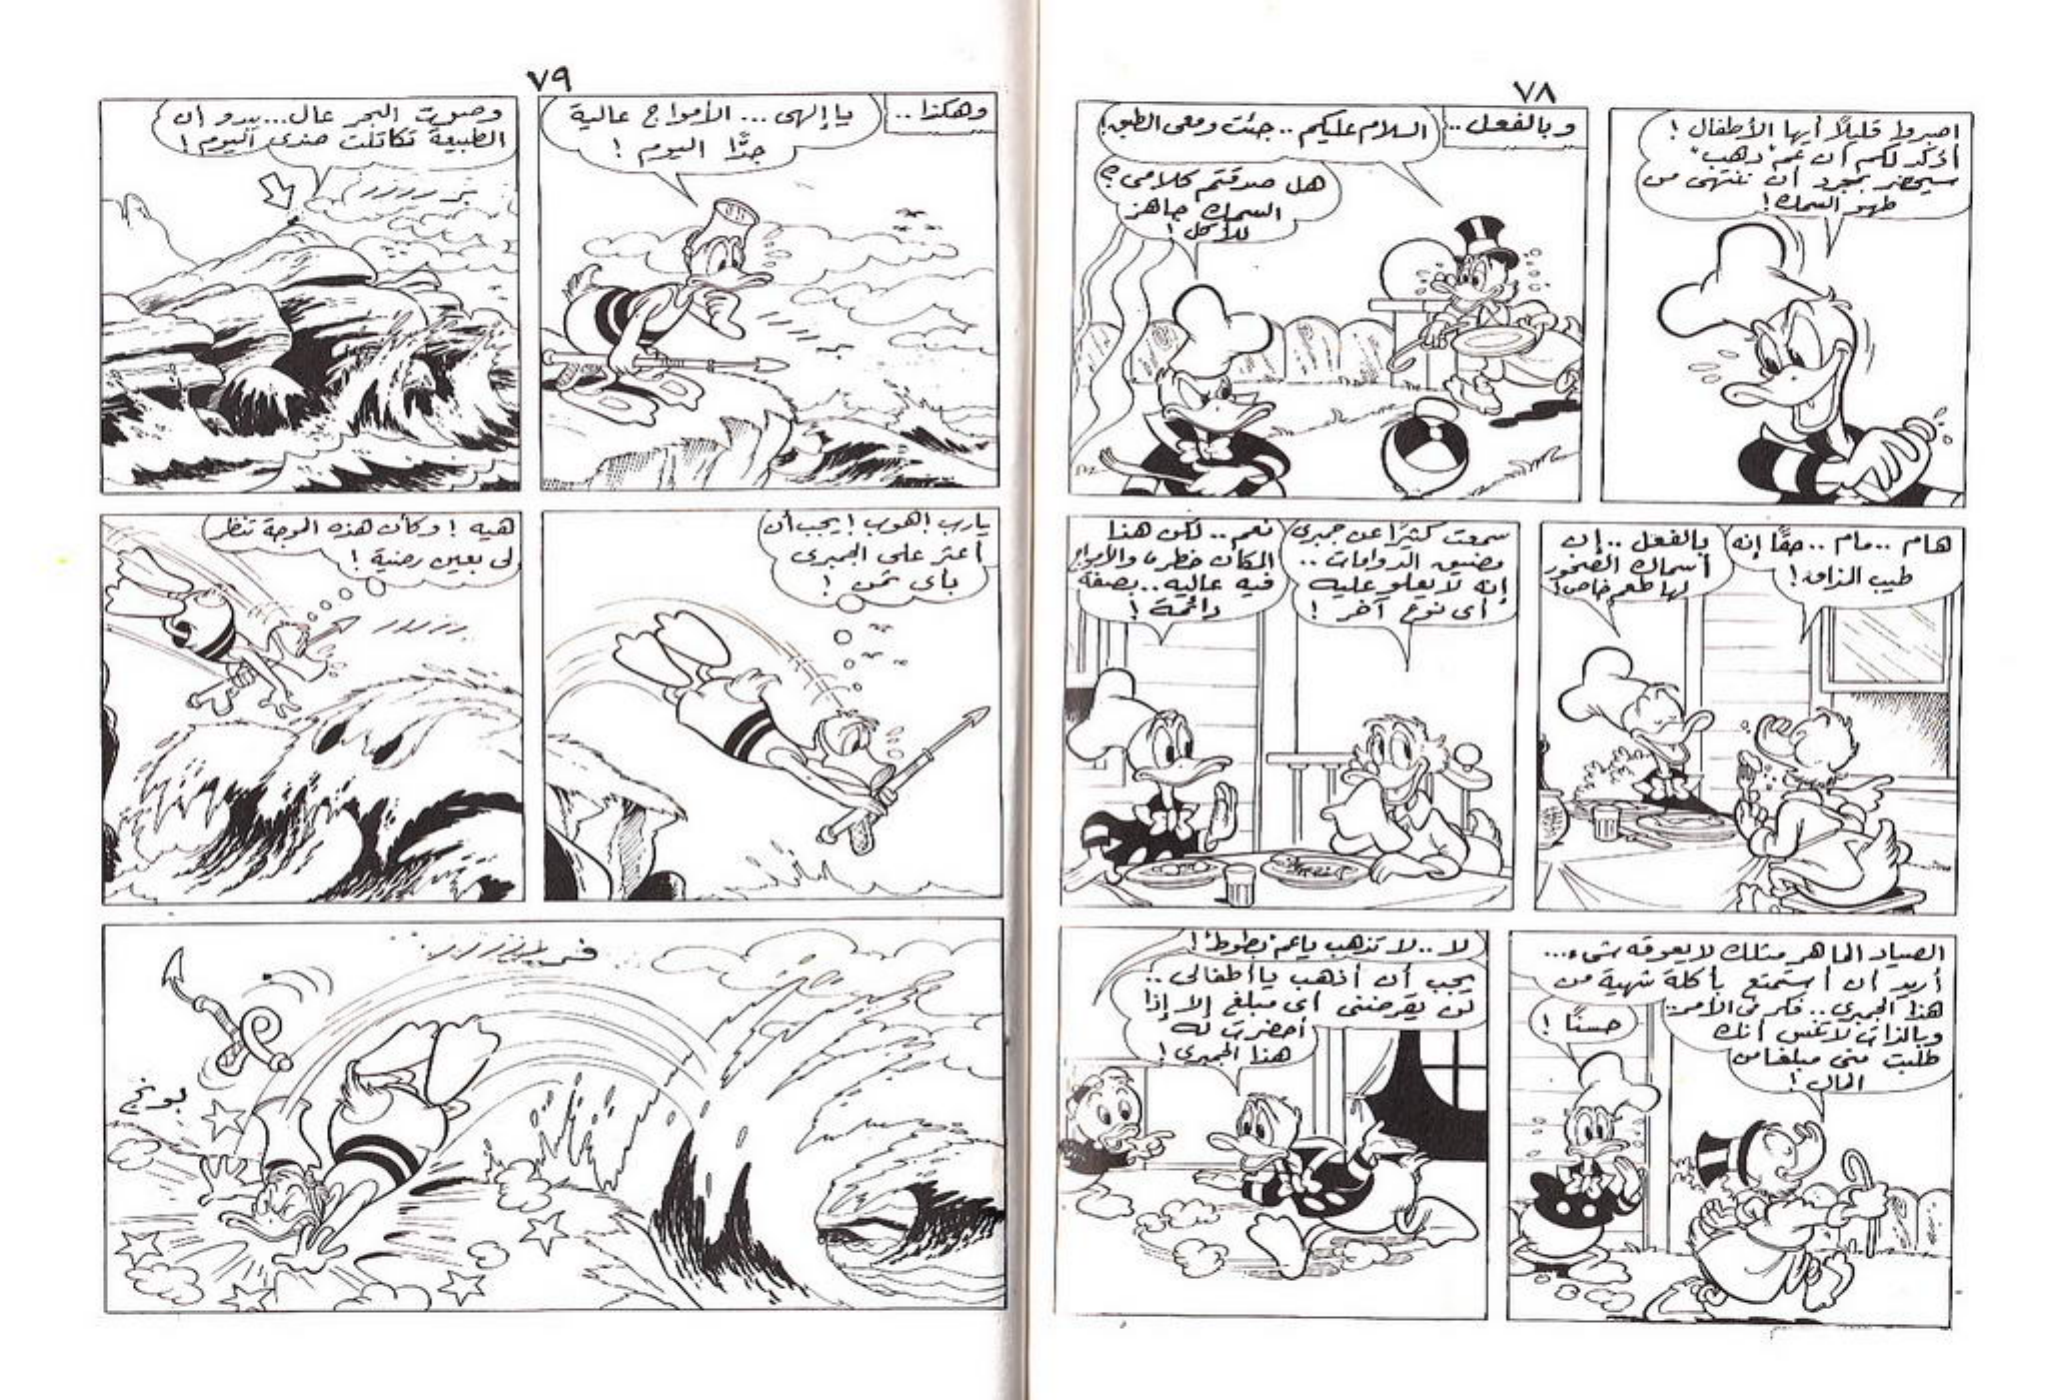 ٧٨
اصبروا قليلاً أيها الأطفال !
أؤكد لكم أن عم "دهب"
سيحضر بمجرد أن ننتهى من
طهو السمك !
وبالفعل ..
السلام عليكم .. جئت ومعى الطبق !
هل صدقتم كلامى ؟
السمك جاهز
للأكل !
هام .. مام .. حقًا إنه
طيب المذاق !
بالفعل .. إن
أسماك الصخور
لها طعم خاص !
سمعت كثيرًا عن جمبرى
مضيق الدوامات ..
إنه لا يعلو عليه
أى نوع آخر !
نعم .. لكن هذا
المكان خطر والأمواج
فيه عالية .. بصفة
دائمة !
الصياد الماهر مثلك لا يعوقه شىء ...
أريد أن أستمتع بأكلة شهية من
هذا الجمبرى .. فكر فى الأمر ..
وبالذات لا تنس أنك
طلبت منى مبلغا من
المال !
حسنًا !
لا .. لا تذهب يا عم "بطوط" !
يجب أن أذهب يا أطفالى ..
لن يقرضنى أى مبلغ إلا إذا
أحضرت له
هذا الجمبرى !
٧٩
وهكذا ..
يا إلهى ... الأمواج عالية
جدًّا اليوم !
وصوت البحر عال ... يبدو أن
الطبيعة تكاتلت ضدى اليوم !
يارب اهوب ! يجب أن
أعثر على الجمبرى
بأى ثمن !
هيه ! وكأن هذه الموجة تنظر
لى بعين رضية !
بونج